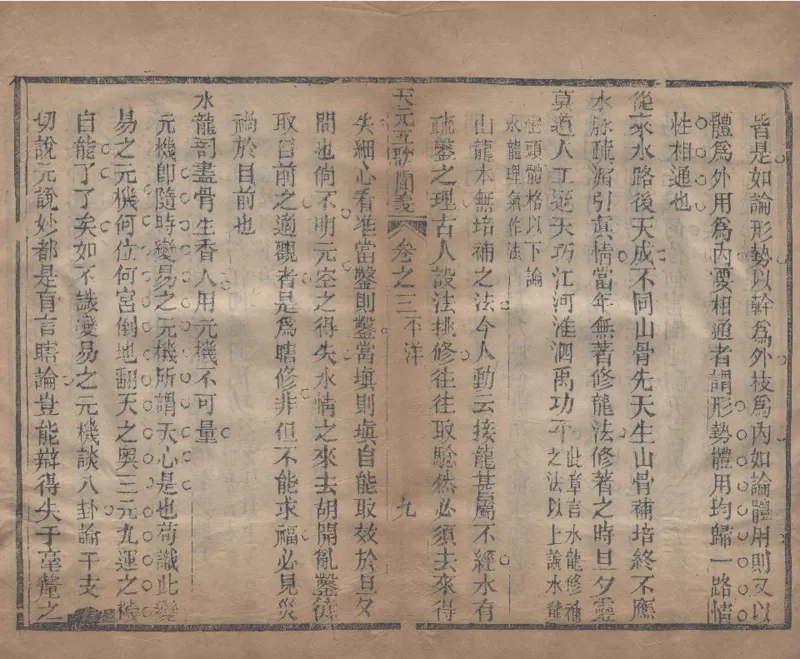 皆是如論形勢以幹爲外枝爲內如論體用則又以
體爲外用爲內要相通者謂形勢體用均歸一路情
性相通也
從來水路後天成不同山骨先天生山骨補培終不應
水脉疏瀹引眞情當年無著修龍法修著之時旦夕靈
莫道人工逆天巧江河淮泗禹功平
此章言水龍修補
之法以上論水龍
巒頭體格以下論
水龍理氣作法
山龍本無培補之法今人動云接龍甚屬不經水有
疏鑿之理古人設法挑修往往取驗然必須去來得
天元五歌闡義 卷之三 不洋 九
失細心看準當鑿則鑿當塡則塡自能取效於旦夕
間也倘不明元空之得失水情之來去胡開亂鑿徒
取目前之適觀者是爲瞎修非但不能求福必見災
禍於目前也
水龍剖盡骨生香人用元機不可量
元機卽隨時變易之元機所謂天心是也苟識此變
易之元機何位何宮倒地翻天之奧三元九運之機
自能了了矣如不識變易之元機談八卦論干支
切說元說妙都是盲言瞎論豈能辯得失于毫釐之